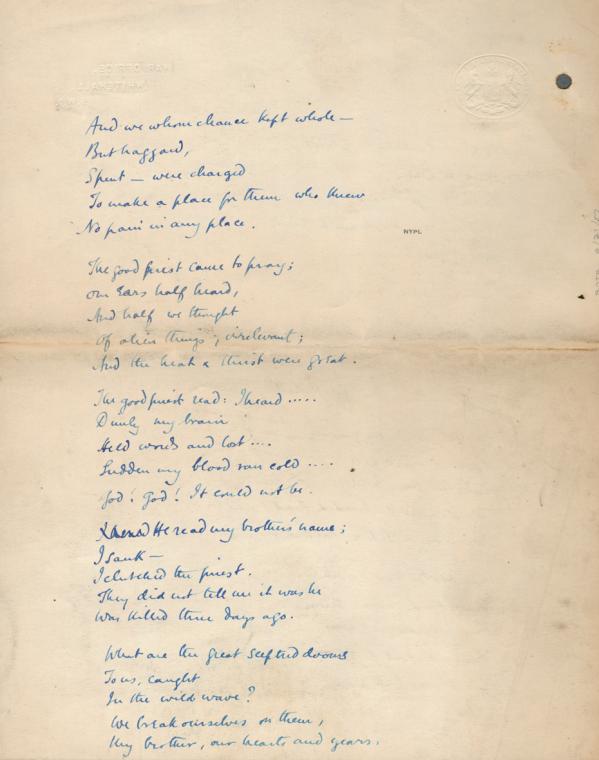 And we whom chance kept whole —
But haggard,
Spent — were charged
To make a place for them who knew
No pain in any place.
NYPL
The good priest came to pray;
Our ears half heard,
And half we thought
Of alien things, irrelevant;
And the heat & thirst were great.
The good priest read: I heard .....
Dimly my brain
Held words and lost ....
Sudden my blood ran cold ....
God! God! It could not be.
He read my brother's name;
I sank —
I clutched the priest.
They did not tell me it was he
Was killed three days ago.
What are the great sceptred dooms
To us, caught
In the wild wave?
We break ourselves on them,
My brother, our hearts and years.